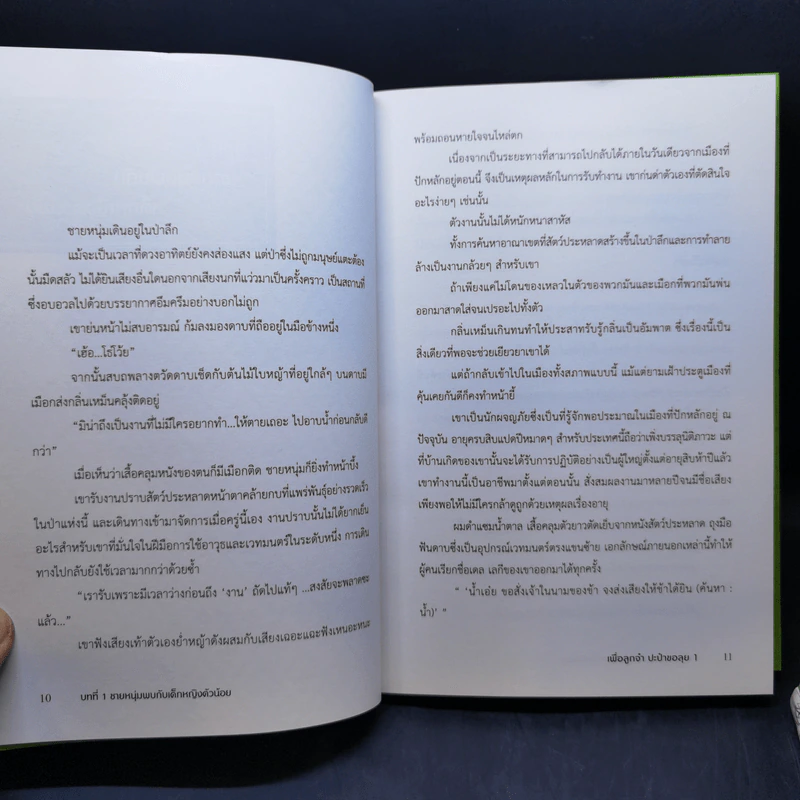 ชายหนุ่มเดินอยู่ในป่าลึก
แม้จะเป็นเวลาที่ดวงอาทิตย์ยังคงส่องแสง แต่ป่าซึ่งไม่ถูกมนุษย์แตะต้อง
นั้นมืดสลัว ไม่ได้ยินเสียงอื่นใดนอกจากเสียงนกที่แว่วมาเป็นครั้งคราว เป็นสถานที่
ซึ่งอบอวลไปด้วยบรรยากาศอึมครึมอย่างบอกไม่ถูก
เขาย่นหน้าไม่สบอารมณ์ ก้มลงมองดาบที่ถืออยู่ในมือข้างหนึ่ง
“เฮ้อ...โธ่โว้ย”
จากนั้นสบถพลางตวัดดาบเช็ดกับต้นไม้ใบหญ้าที่อยู่ใกล้ๆ บนดาบมี
เมือกส่งกลิ่นเหม็นคลุ้งติดอยู่
“มิน่าถึงเป็นงานที่ไม่มีใครอยากทำ...ให้ตายเถอะ ไปอาบน้ำก่อนกลับดี
กว่า”
เมื่อเห็นว่าเสื้อคลุมหนังของตนก็มีเมือกติด ชายหนุ่มก็ยิ่งทำหน้าบึ้ง
เขารับงานปราบสัตว์ประหลาดหน้าตาคล้ายกบที่แพร่พันธุ์อย่างรวดเร็ว
ในป่าแห่งนี้ และเดินทางเข้ามาจัดการเมื่อครู่นี้เอง งานปราบนั้นไม่ได้ยากเย็น
อะไรสำหรับเขาที่มั่นใจในฝีมือการใช้อาวุธและเวทมนตร์ในระดับหนึ่ง การเดิน
ทางไปกลับยังใช้เวลามากกว่าด้วยซ้ำ
“เรารับเพราะมีเวลาว่างก่อนถึง ‘งาน’ ถัดไปแท้ๆ ...สงสัยจะพลาดซะ
แล้ว...”
เขาฟังเสียงเท้าตัวเองย่ำหญ้าดังผสมกับเสียงเฉอะแฉะฟังเหนอะหนะ
10 บทที่ 1 ชายหนุ่มพบกับเด็กหญิงตัวน้อย
พร้อมถอนหายใจจนไหล่ตก
เนื่องจากเป็นระยะทางที่สามารถไปกลับได้ภายในวันเดียวจากเมืองที่
ปักหลักอยู่ตอนนี้ จึงเป็นเหตุผลหลักในการรับทำงาน เขาก่นด่าตัวเองที่ตัดสินใจ
อะไรง่ายๆ เช่นนั้น
ตัวงานนั้นไม่ได้หนักหนาสาหัส
ทั้งการค้นหาอาณาเขตที่สัตว์ประหลาดสร้างขึ้นในป่าลึกและการทำลาย
ล้างเป็นงานกล้วยๆ สำหรับเขา
ถ้าเพียงแค่ไม่โดนของเหลวในตัวของพวกมันและเมือกที่พวกมันพ่น
ออกมาสาดใส่จนเปรอะไปทั้งตัว
กลิ่นเหม็นเกินทนทำให้ประสาทรับรู้กลิ่นเป็นอัมพาต ซึ่งเรื่องนี้เป็น
สิ่งเดียวที่พอจะช่วยเยียวยาเขาได้
แต่ถ้ากลับเข้าไปในเมืองทั้งสภาพแบบนี้ แม้แต่ยามเฝ้าประตูเมืองที่
คุ้นเคยกันดีก็คงทำหน้ายี้
เขาเป็นนักผจญภัยซึ่งเป็นที่รู้จักพอประมาณในเมืองที่ปักหลักอยู่ ณ
ปัจจุบัน อายุครบสิบแปดปีหมาดๆ สำหรับประเทศนี้ถือว่าเพิ่งบรรลุนิติภาวะ แต่
ที่บ้านเกิดของเขานั้นจะได้รับการปฏิบัติอย่างเป็นผู้ใหญ่ตั้งแต่อายุสิบห้าปีแล้ว
เขาทำงานนี้เป็นอาชีพมาตั้งแต่ตอนนั้น สั่งสมผลงานมาหลายปีจนมีชื่อเสียง
เพียงพอให้ไม่มีใครกล้าดูถูกด้วยเหตุผลเรื่องอายุ
ผมดำแซมน้ำตาล เสื้อคลุมตัวยาวตัดเย็บจากหนังสัตว์ประหลาด ถุงมือ
ฟันดาบซึ่งเป็นอุปกรณ์เวทมนตร์ตรงแขนซ้าย เอกลักษณ์ภายนอกเหล่านี้ทำให้
ผู้คนเรียกชื่อเดล เลกีของเขาออกมาได้ทุกครั้ง
“ ‘น้ำเอ๋ย ขอสั่งเจ้าในนามของข้า จงส่งเสียงให้ข้าได้ยิน (ค้นหา :
น้ำ)’ “
เพื่อลูกจ๋า ปะป๋าขอลุย 1 11